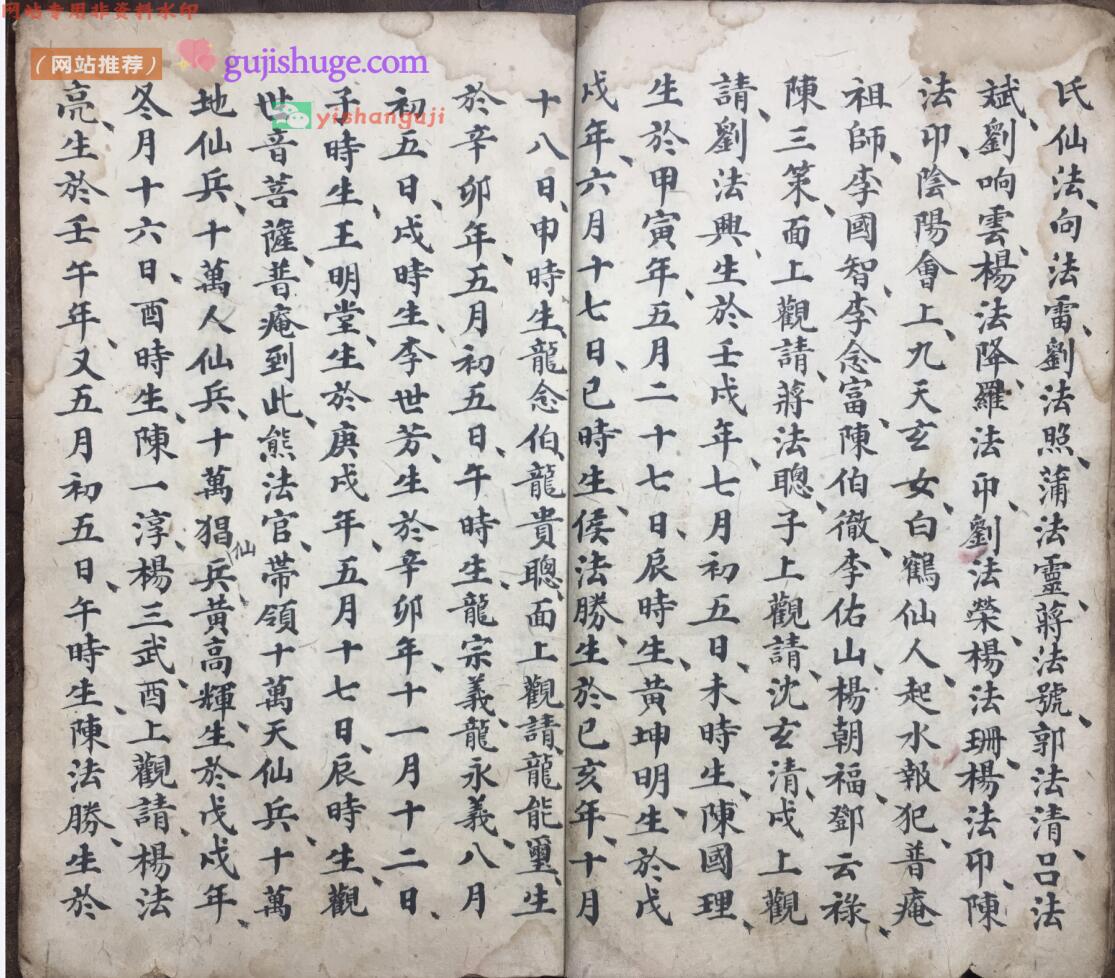 网站专用非资料水印
(网站推荐)
gujishuge.com
yishanguji
氏仙法、向法雷、劉法照、蒲法靈、蔣法號、郭法清、吕法
斌、劉响雲、楊法降、羅法印、劉法荣、楊法珊、楊法印、陳
法印、陰陽會上、九天玄女、白鶴仙人、起水報犯、普庵
祖師、李國智、李念富、陳伯徹、李佑山、楊朝福、鄧云祿、
陳三策、面上觀請、蔣法聰、子上觀請、沈玄清、戌上觀
請、劉法興、生於壬戌年、七月初五日、未時生、陳國理、
生於甲寅年、五月二十七日、辰時生、黃坤明、生於戊
戌年、六月十七日、巳時生、侯法勝、生於己亥年、十月
十八日、申時生、龍念伯、龍貴聰、面上觀請、龍能璽、生
於辛卯年、五月初五日、午時生、龍宗義、龍永義、八月
初五日、戌時生、李世芳、生於辛卯年、十一月十二日、
子時生、王明堂、生於庚戌年、五月十七日、辰時生、觀
世音菩薩、普庵到此、熊法官、帶領十萬天仙兵、十萬
地仙兵、十萬人仙兵、十萬猖仙兵、黃高輝、生於戊戌年、
冬月十六日、酉時生、陳一淳、楊三武、酉上觀請、楊法
亮、生於壬午年、又五月初五日、午時生、陳法勝、生於